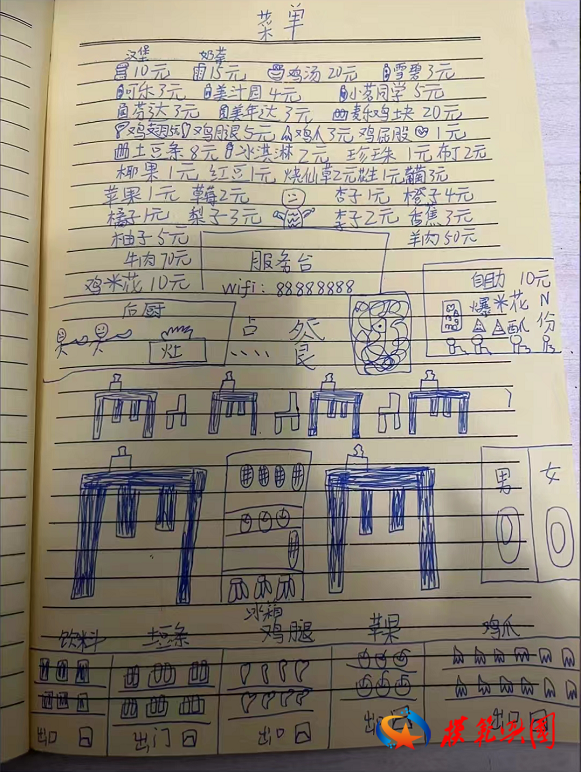 菜单
汉堡 奶茶
10元 15元 鸡汤 20元 雪碧 3元
可乐 3元 美汁园 4元 小茗同学 5元
芬达 3元 美年达 3元 麦乐鸡块 20元
鸡翅 5元 鸡腿 5元 鸡心 3元 鸡屁股 1元
土豆条 8元 冰淇淋 2元 珍珠 1元 布丁 2元
椰果 1元 红豆 1元 烧仙草 2元 花生 1元 3元
苹果 1元 草莓 2元 杏子 1元 橙子 4元
橘子 1元 梨子 3元 李子 2元 香蕉 3元
柚子 5元 羊肉 50元
牛肉 70元 服务台
鸡米花 10元 wifi: 88888888
自助 10元
爆米花 N
份
后厨 点 餐
灶
男 女
冰箱
饮料 土豆条 鸡腿 苹果 鸡爪
出口 出门 出口 出口 出口